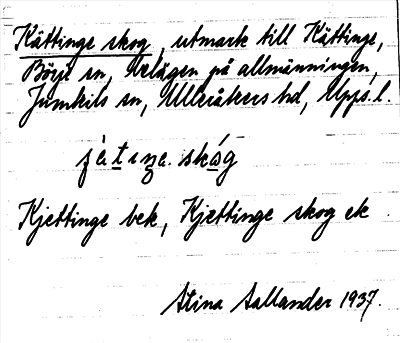 Kättinge skog, utmark till Kättinge,
Börje sn, belägen på allmänningen,
Jumkils sn, Ulleråkers hd, Upps. l.
Kjettinge bek, Kjettinge skog ek.
Stina Sallander 1937.